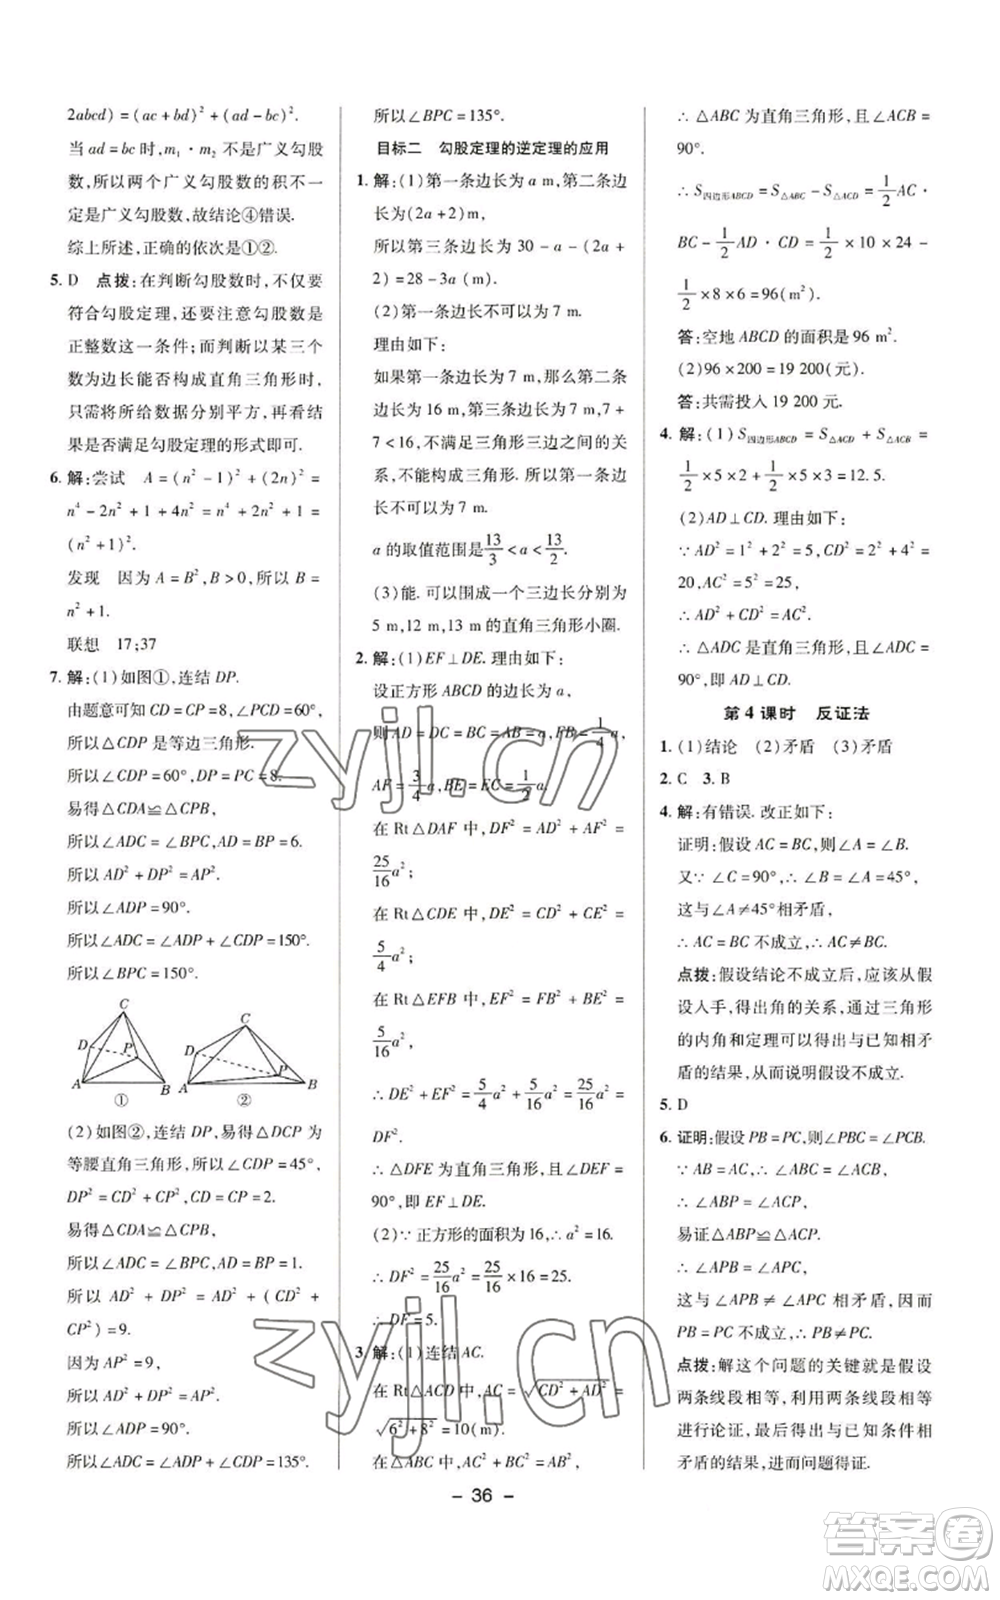 2abcd) = (ac + bd)² + (ad - bc)².
当 ad = bc 时, m₁ · m₂ 不是广义勾股
数, 所以两个广义勾股数的积不一
定是广义勾股数, 故结论④错误.
综上所述, 正确的依次是①②.
5. D 点拨: 在判断勾股数时, 不仅要
符合勾股定理, 还要注意勾股数是
正整数这一条件; 而判断以某三个
数为边长能否构成直角三角形时,
只需将所给数据分别平方, 再看结
果是否满足勾股定理的形式即可.
6. 解: 尝试 A = (n² - 1)² + (2n)² =
n⁴ - 2n² + 1 + 4n² = n⁴ + 2n² + 1 =
(n² + 1)².
发现 因为 A = B², B > 0, 所以 B =
n² + 1.
联想 17; 37
7. 解: (1) 如图①, 连结 DP.
由题意可知 CD = CP = 8, ∠PCD = 60°,
所以△CDP 是等边三角形.
所以∠CDP = 60°, DP = PC = 8.
易得△CDA≌△CPB,
所以∠ADC = ∠BPC, AD = BP = 6.
所以 AD² + DP² = AP².
所以∠ADP = 90°.
所以∠ADC = ∠ADP + ∠CDP = 150°.
所以∠BPC = 150°.
C
D
P
A
B
①
C
D
P
A
B
②
(2) 如图②, 连结 DP, 易得△DCP 为
等腰直角三角形, 所以∠CDP = 45°,
DP² = CD² + CP², CD = CP = 2.
易得△CDA≌△CPB,
所以∠ADC = ∠BPC, AD = BP = 1.
所以 AD² + DP² = AD² + (CD² +
CP²) = 9.
因为 AP² = 9,
所以 AD² + DP² = AP².
所以∠ADP = 90°.
所以∠ADC = ∠ADP + ∠CDP = 135°.
所以∠BPC = 135°.
目标二 勾股定理的逆定理的应用
1. 解: (1) 第一条边长为 a m, 第二条
边长为(2a + 2) m,
所以第三条边长为 30 - a - (2a +
2) = 28 - 3a (m).
(2) 第一条边长不可以为 7 m.
理由如下:
如果第一条边长为 7 m, 那么第二条
边长为 16 m, 第三条边长为 7 m, 7 +
7 < 16, 不满足三角形三边之间的关
系, 不能构成三角形. 所以第一条边
长不可以为 7 m.
a 的取值范围是 13/3 < a < 13/2.
(3) 能. 可以围成一个三边长分别为
5 m, 12 m, 13 m 的直角三角形小圈.
2. 解: (1) EF⊥DE. 理由如下:
设正方形 ABCD 的边长为 a,
则 AD = DC = BC = AB = a, FB = 1/4 a,
AF = 3/4 a, BE = EC = 1/2 a.
在 Rt△DAF 中, DF² = AD² + AF² =
25/16 a²;
在 Rt△CDE 中, DE² = CD² + CE² =
5/4 a²;
在 Rt△EFB 中, EF² = FB² + BE² =
5/16 a²,
∴ DE² + EF² = 5/4 a² + 5/16 a² = 25/16 a² =
DF².
∴ △DFE 为直角三角形, 且∠DEF =
90°, 即 EF⊥DE.
(2) ∵ 正方形的面积为 16, ∴ a² = 16.
∴ DF² = 25/16 a² = 25/16 × 16 = 25.
∴ DF = 5.
3. 解: (1) 连结 AC.
在 Rt△ACD 中, AC = √(CD² + AD²) =
√(6² + 8²) = 10(m).
在△ABC 中, AC² + BC² = AB²,
∴ △ABC 为直角三角形, 且∠ACB =
90°.
∴ S四边形ABCD = S△ABC - S△ACD = 1/2 AC ·
BC - 1/2 AD · CD = 1/2 × 10 × 24 -
1/2 × 8 × 6 = 96(m²).
答: 空地 ABCD 的面积是 96 m².
(2) 96 × 200 = 19 200(元).
答: 共需投入 19 200 元.
4. 解: (1) S四边形ABCD = S△ACD + S△ACB =
1/2 × 5 × 2 + 1/2 × 5 × 3 = 12.5.
(2) AD⊥CD. 理由如下:
∵ AD² = 1² + 2² = 5, CD² = 2² + 4² =
20, AC² = 5² = 25,
∴ AD² + CD² = AC².
∴ △ADC 是直角三角形, ∠ADC =
90°, 即 AD⊥CD.
第 4 课时 反证法
1. (1) 结论 (2) 矛盾 (3) 矛盾
2. C 3. B
4. 解: 有错误. 改正如下:
证明: 假设 AC = BC, 则∠A = ∠B.
又∵ ∠C = 90°, ∴ ∠A = ∠B = 45°,
这与∠A≠45°相矛盾,
∴ AC = BC 不成立, ∴ AC≠BC.
点拨: 假设结论不成立后, 应该从假
设入手, 得出角的关系, 通过三角形
的内角和定理可以得出与已知相矛
盾的结果, 从而说明假设不成立.
5. D
6. 证明: 假设 PB = PC, 则∠PBC = ∠PCB.
∵ AB = AC, ∴ ∠ABC = ∠ACB.
∴ ∠ABP = ∠ACP.
易证△ABP≌△ACP,
∴ ∠APB = ∠APC,
这与∠APB ≠ ∠APC 相矛盾, 因而
PB = PC 不成立, ∴ PB≠PC.
点拨: 解这个问题的关键就是假设
两条线段相等, 利用两条线段相等
进行论证, 最后得出与已知条件相
矛盾的结果, 进而问题得证.
- 36 -
zyjl.cn
zyjl.cn
答案圈
MXQE.COM